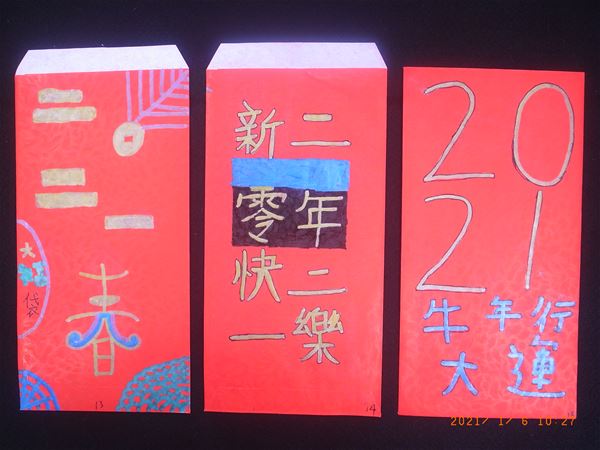 二
二一
春
大
袋
13
新二
零年
快二
一樂
14
20
21
牛年行
大運
2021/ 1/ 6 10:27